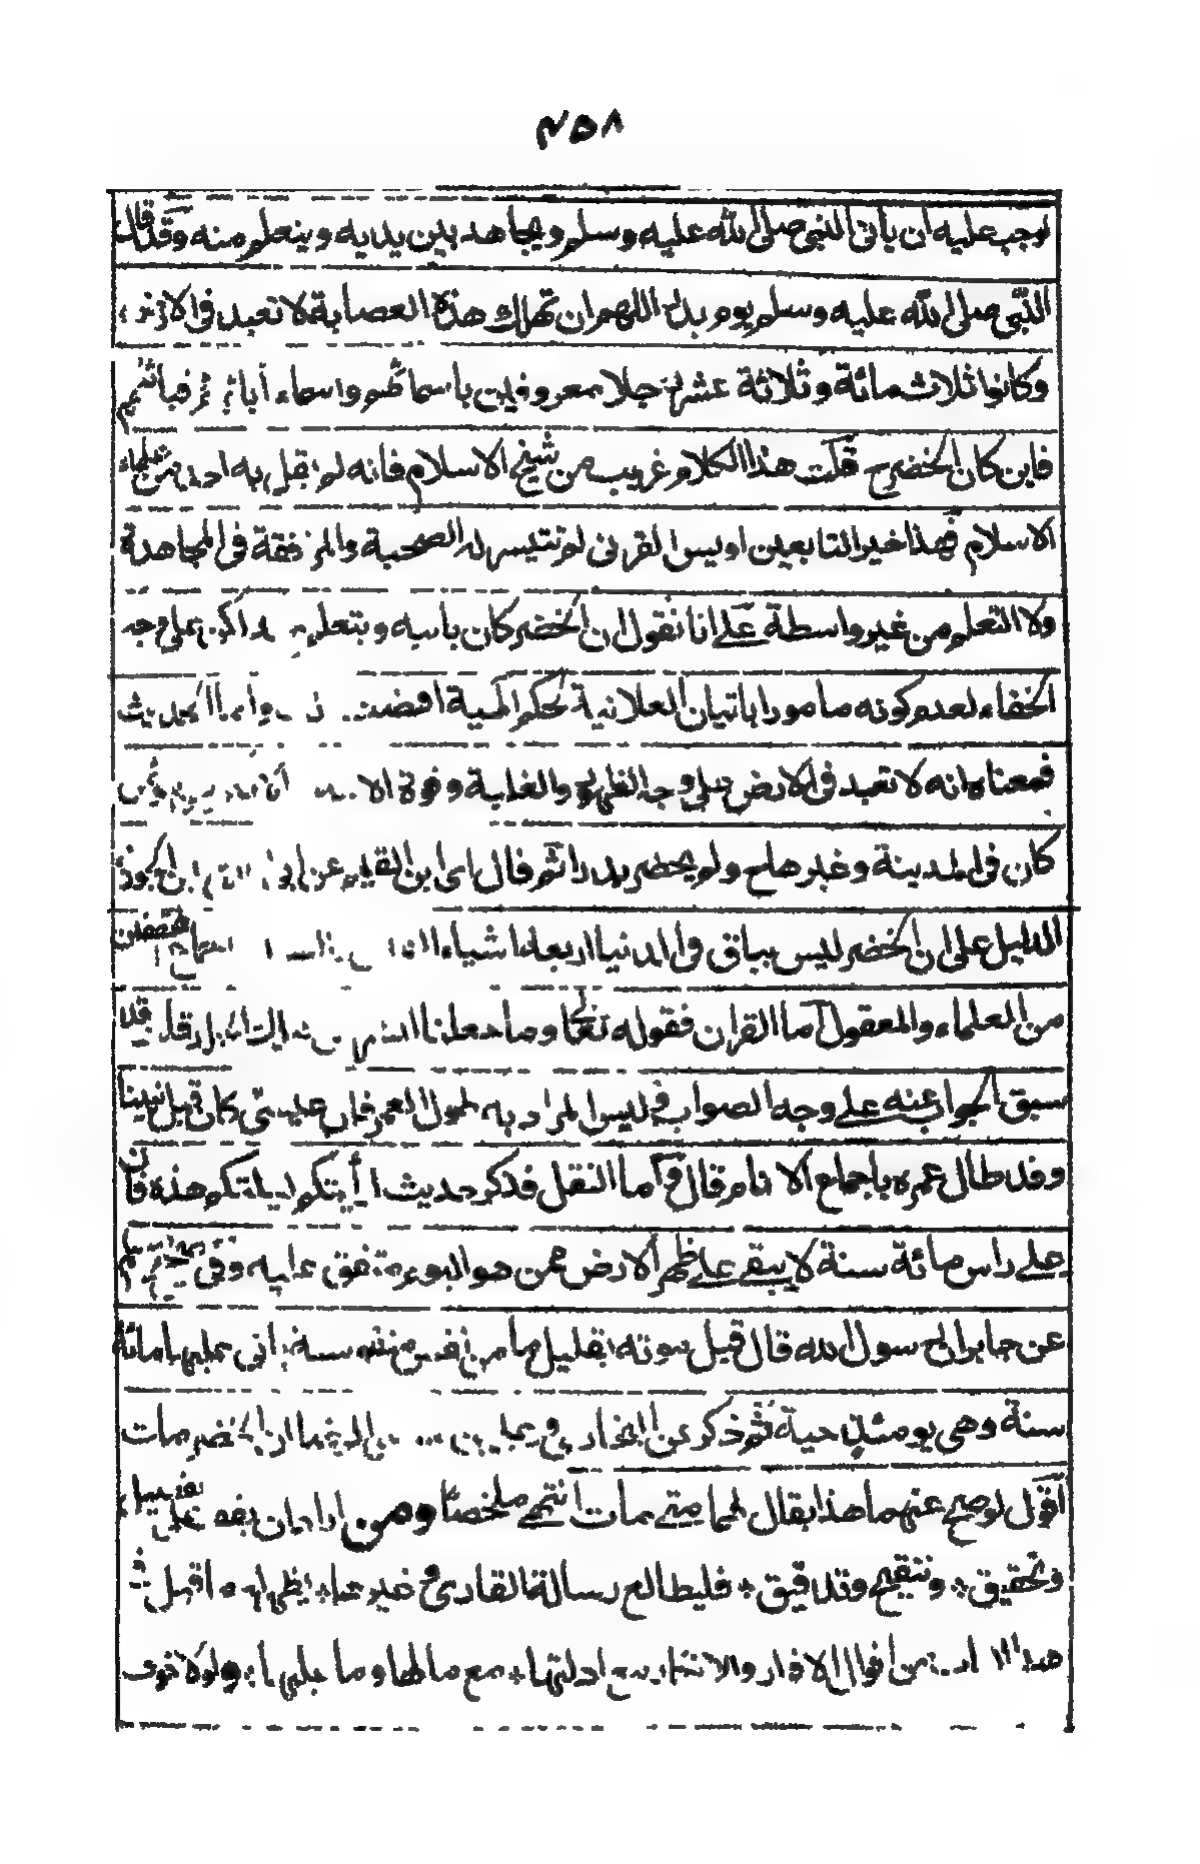 ٢٥٨
لوجب عليه ان ياتى النبى صلى الله عليه وسلم ويجاهد بين يديه ويتعلم منه وقد قال
النبى صلى الله عليه وسلم يوم بدر اللهم ان تهلك هذه العصابة لا تعبد فى الارض
وكانوا ثلاث مائة وثلاثة عشر رجلا معروفين باسمائهم واسماء آبائهم وقبائلهم
فاين كان الخضر ح قلت هذا الكلام غريب من شيخ الاسلام فانه لم يقل به احد من علماء
الاسلام فهذا خير التابعين اويس القرنى لم تتيسر له الصحبة والمرافقة فى المجاهدة
ولا التعلم من غير واسطة على انا نقول ان الخضر كان ياتيه ويتعلم لكن على وجه
الخفاء لعدم كونه مامورا باتيان العلانية لحكم الٰهية اقتضت واما الحديث
فمعناه انه لا تعبد فى الارض على وجه الظهور والغلبة وقوة
كان فى المدينة وغيرها ولم يحضر بدرا ثم قال اى ابن القيم عن ابن الجوزى
الدليل على ان الخضر ليس بباق فى الدنيا اربعة اشياء المحققين
من العلماء والمعقول اما القران فقوله تعالى وما جعلنا قلت قد
سبق الجواب عنه على وجه الصواب فليس المراد به طول العمر فان عيسى كان قبل نبينا
وقد طال عمره باجماع الانام قال واما النقل فذكر حديث ارأيتكم ليلتكم هذه فان
على راس مائة سنة لا يبقى على ظهر الارض ممن هو اليوم متفق عليه وفى صحيح مسلم
عن جابر ان رسول الله قال قبل موته بقليل ما من نفس منفوسة ياتى عليها مائة
سنة وهى يومئذ حية ثم ذكر عن البخارى وعلى بن ان الخضر مات
اقول لو صح عنهما هذا يقال لهما متى مات انتهى ملخصا ومن اراد ان يقف على تفصيل
وتحقيق ؛ وتنقيح وتدقيق ؛ فليطالع رسالة القارى
من اقوال والانتهاء مع ادلتها ؛ مع مالها وما عليها ؛